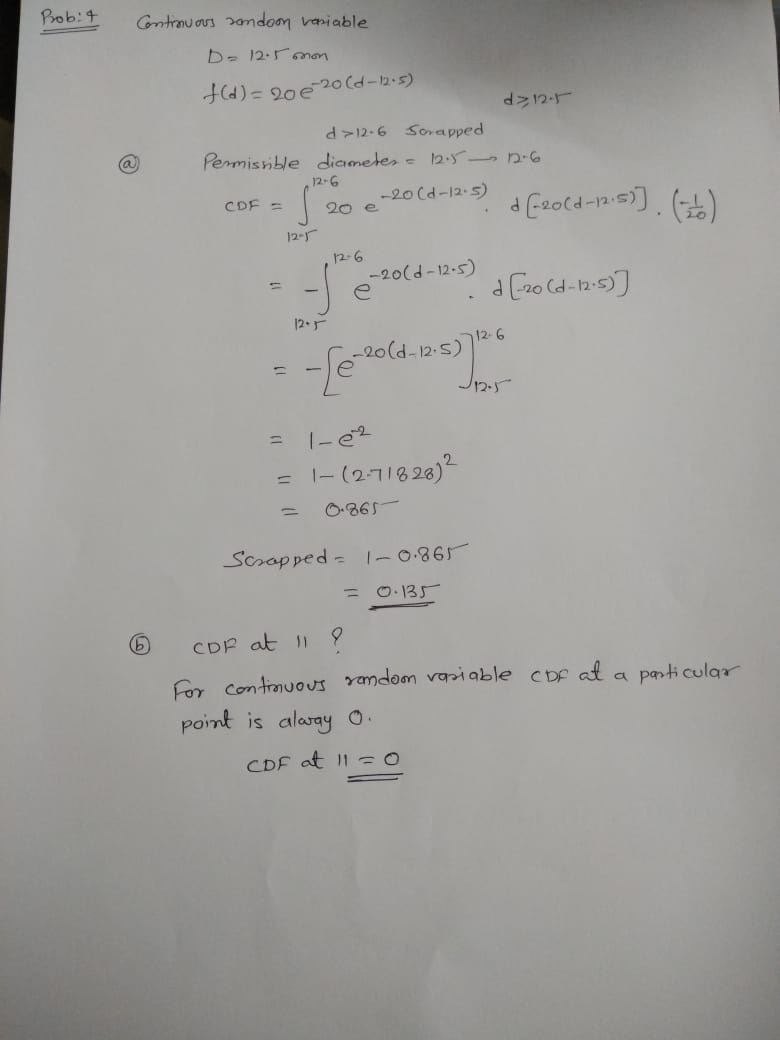 Prob: 4 Continuous random variable
D = 12.5 mm
f(d) = 20 e^{-20(d-12.5)} d ≥ 12.5
d > 12.6 Scrapped
(a) Permissible diameter = 12.5 → 12.6
CDF = ∫_{12.5}^{12.6} 20 e^{-20(d-12.5)} . d[-20(d-12.5)] . (-1/20)
= -∫_{12.5}^{12.6} e^{-20(d-12.5)} . d[-20(d-12.5)]
= -[e^{-20(d-12.5)}]_{12.5}^{12.6}
= 1 - e^{-2}
= 1 - (2.71828)^2
= 0.865
Scrapped = 1 - 0.865
= 0.135
(b) CDF at 11 ?
For continuous random variable CDF at a particular
point is alway 0.
CDF at 11 = 0